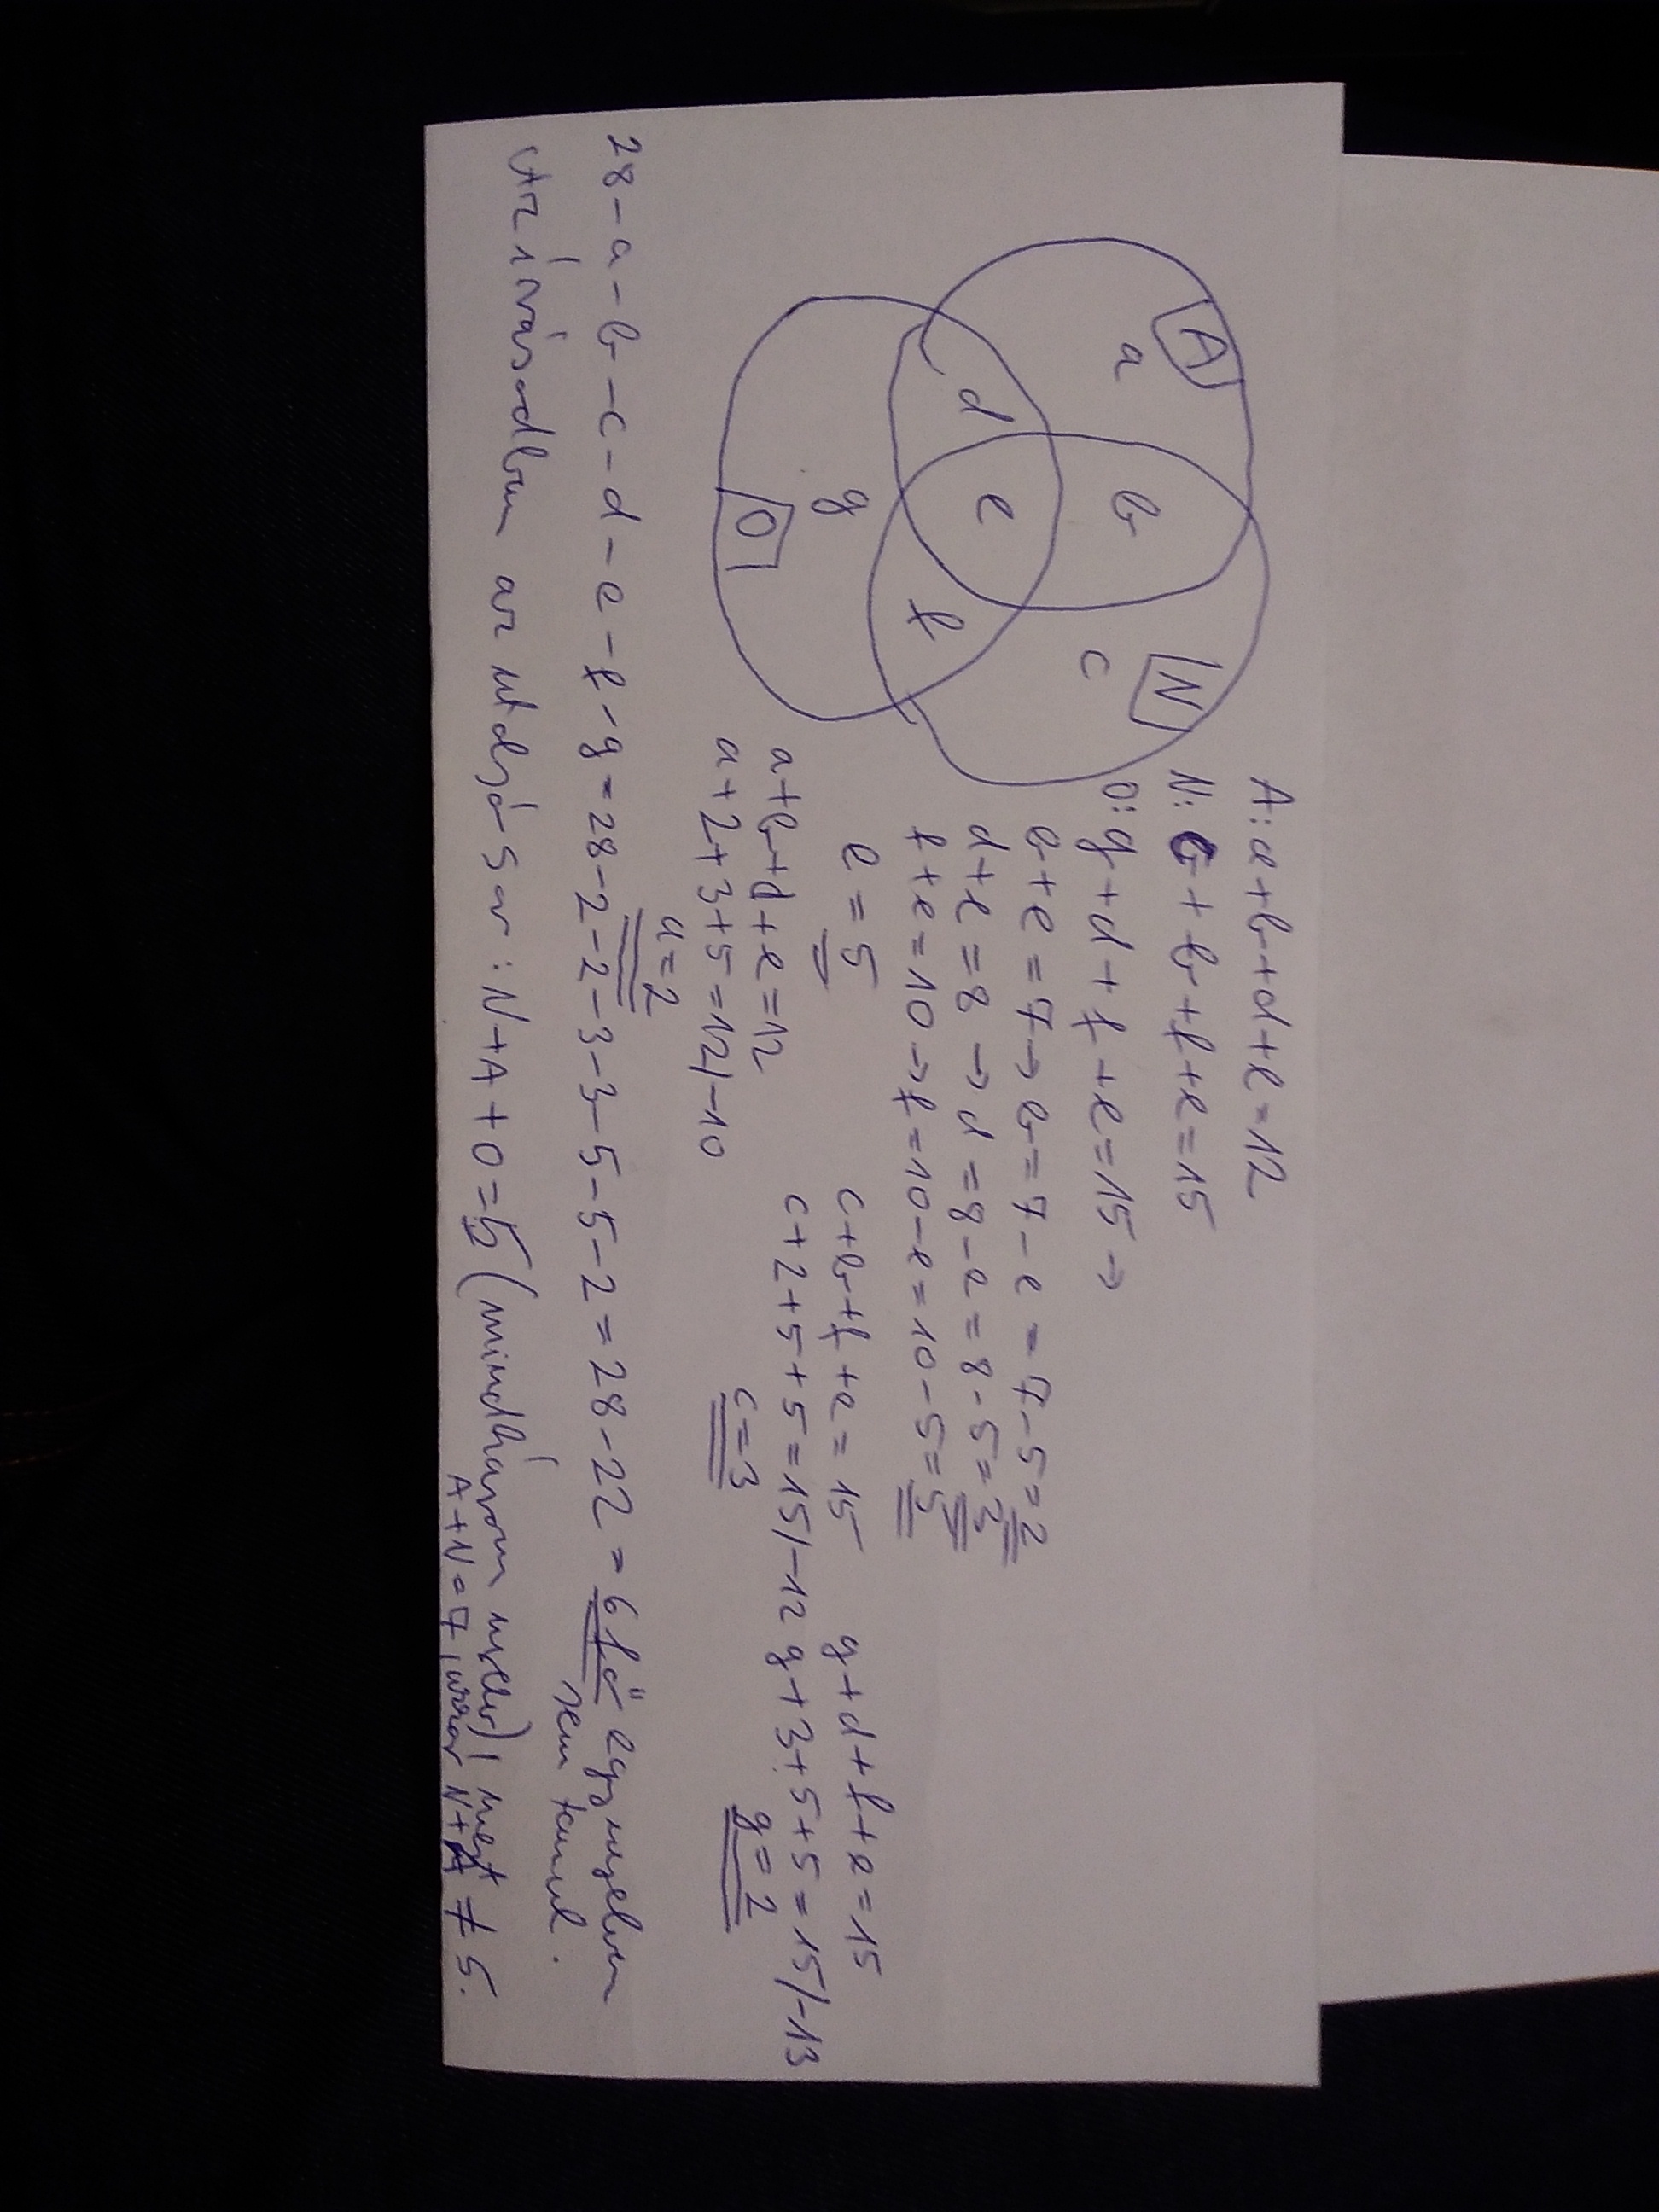 A
N
a
b
c
d
e
f
g
O
A: a+b+d+e=12
N: c+b+f+e=15
O: g+d+f+e=15 →
b+e=7 → b=7-e=7-5=2
d+e=8 → d=8-e=8-5=3
f+e=10 → f=10-e=10-5=5
e=5
a+b+d+e=12
a+2+3+5=12/-10
a=2
c+b+f+e=15
c+2+5+5=15/-12
c=3
g+d+f+e=15
g+3+5+5=15/-13
g=2
28-a-b-c-d-e-f-g=28-2-2-3-3-5-5-2=28-22=6 fő egy nyelven
sem tanul.
Az írásodban az utolsó sor: N+A+O=5 (mindhárom nyelv), mert
A+N=7, azaz N+A≠5.